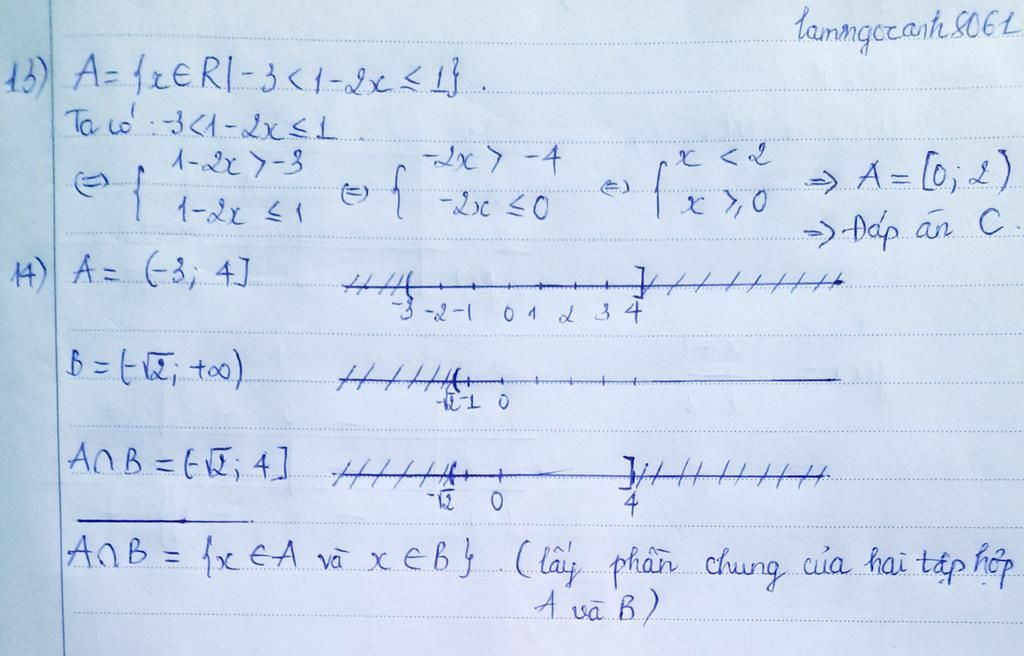 lamngocanh8061
13) A = {x ∈ R | -3 < 1-2x ≤ 1}.
Ta có: -3 < 1-2x ≤ 1.
⇔ { 1-2x > -3 ⇔ { -2x > -4 ⇔ { x < 2 ⇒ A = [0; 2)
1-2x ≤ 1 -2x ≤ 0 x ≥ 0 ⇒ Đáp án C.
14) A = (-3; 4]
-3 -2 -1 0 1 2 3 4
B = (-√2; +∞)
-√2 -1 0
A∩B = (-√2; 4]
-√2 0 4
A∩B = {x ∈ A và x ∈ B}. (lấy phần chung của hai tập hợp
A và B)